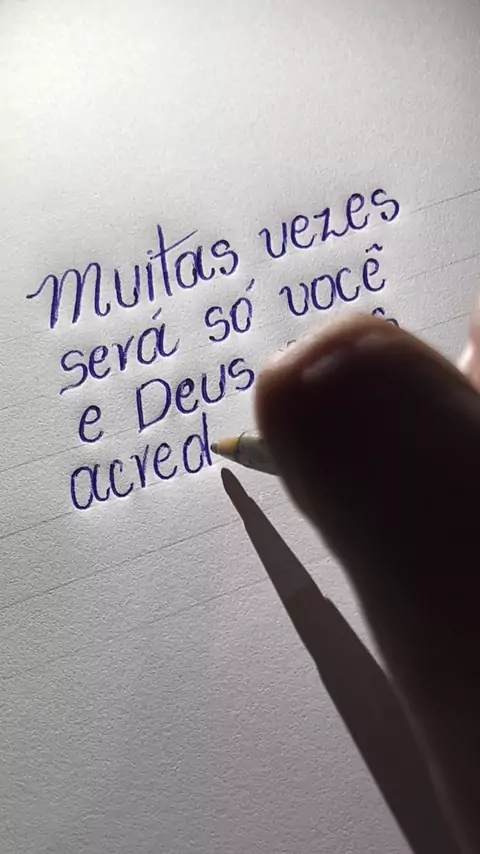 Muitas vezes
será só você
e Deus
acred